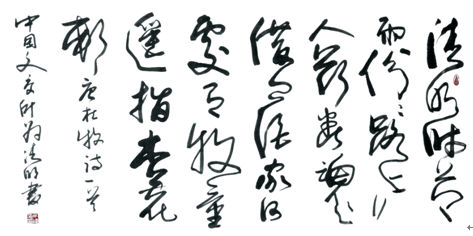 清明时节
雨纷纷路上行
人欲断魂
借问酒家何
处有牧童
遥指杏花
邨 唐杜牧诗一首
中国文